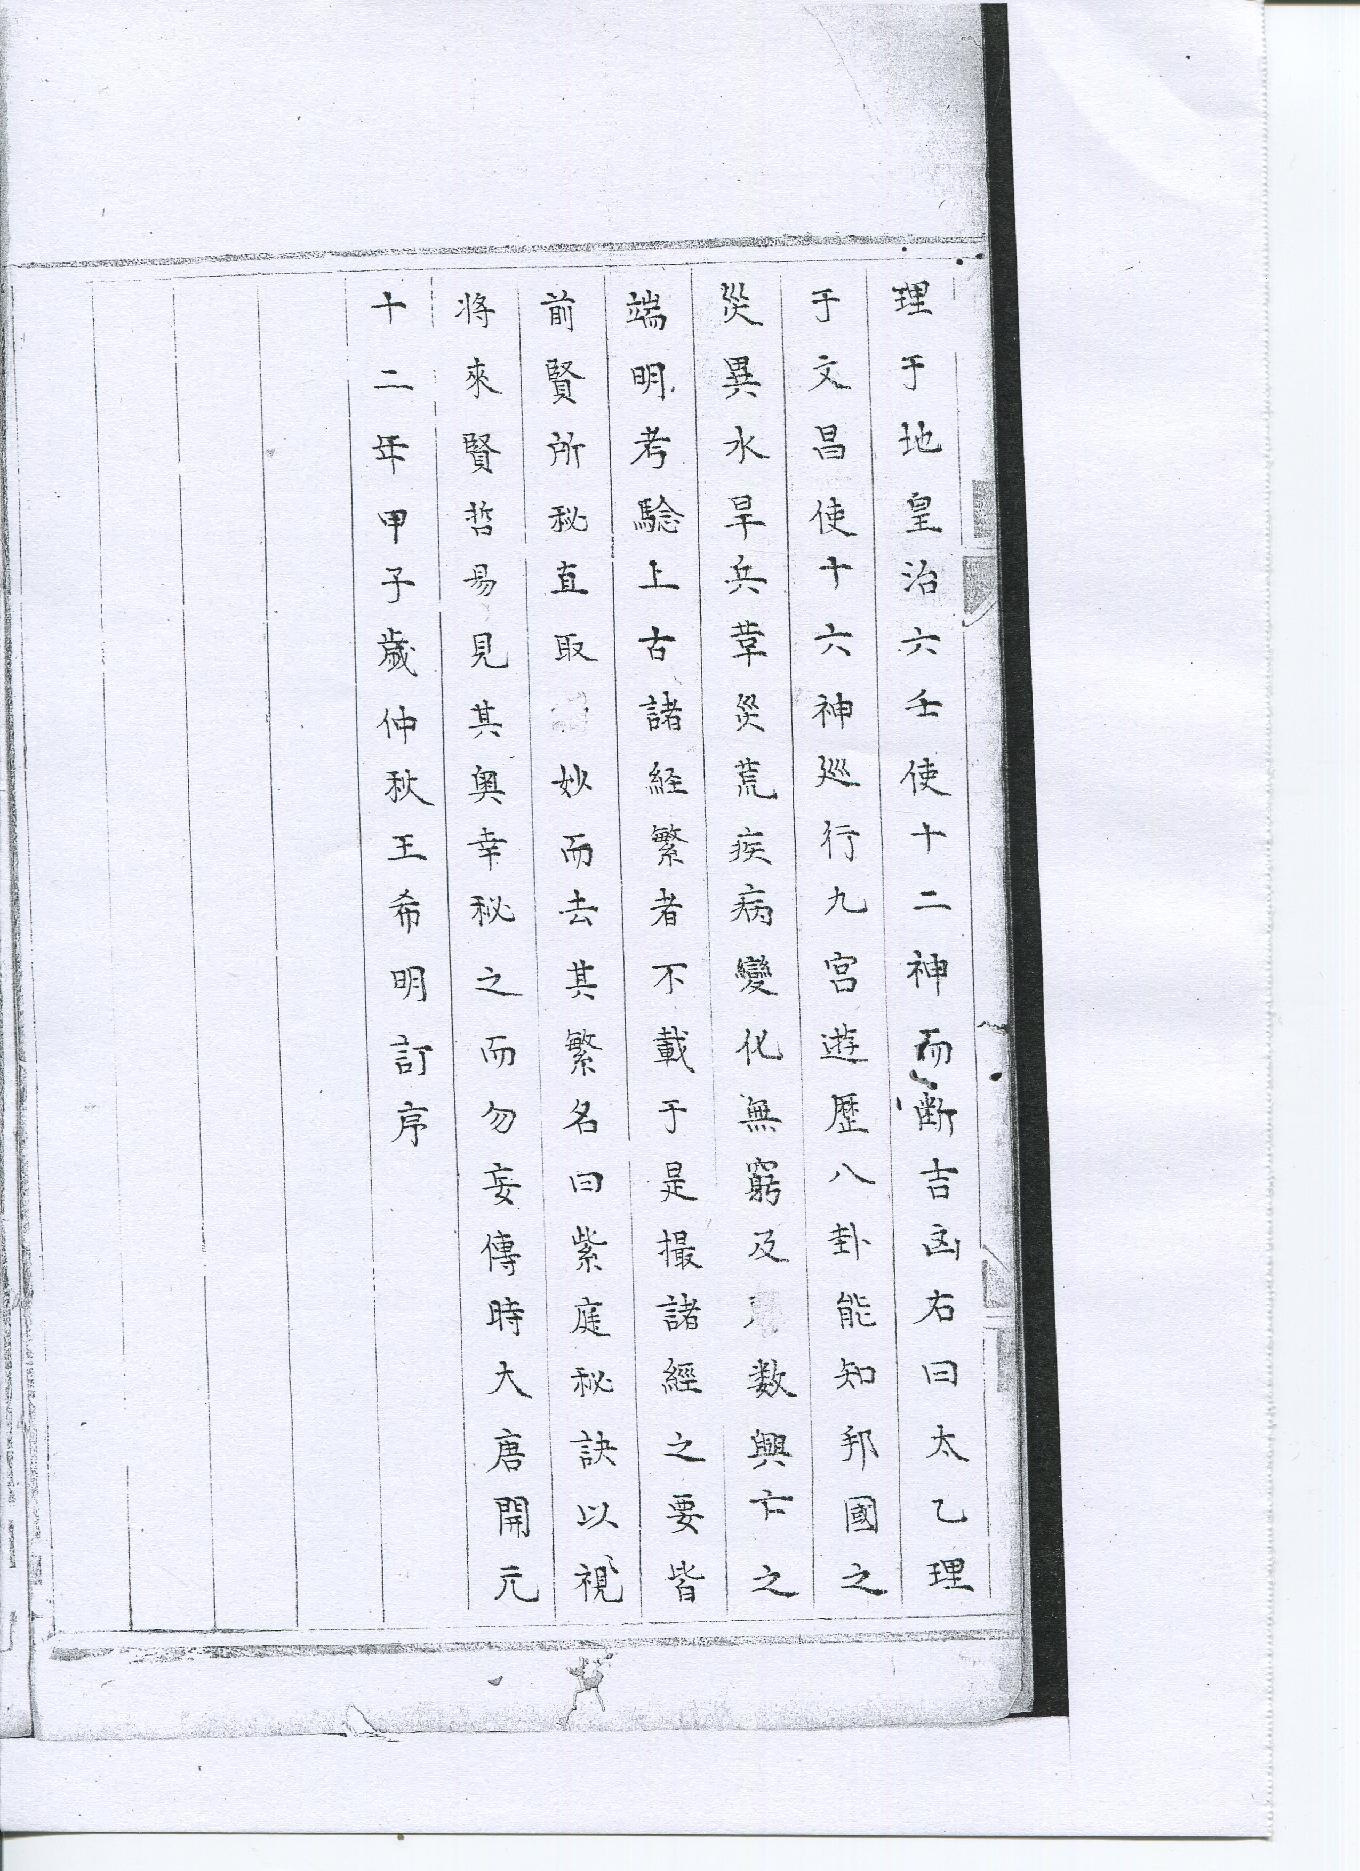 理于地皇治六壬使十二神而断吉凶右曰太乙理
于文昌使十六神廵行九宫遊歷八卦能知邦國之
災異水旱兵革災荒疾病變化無窮及数興亡之
端明考騐上古諸経繁者不載于是撮諸經之要皆
前賢所秘直取妙而去其繁名曰紫庭秘訣以視
将來賢哲易見其奥幸秘之而勿妄傳時大唐開元
十二年甲子歲仲秋王希明訂序